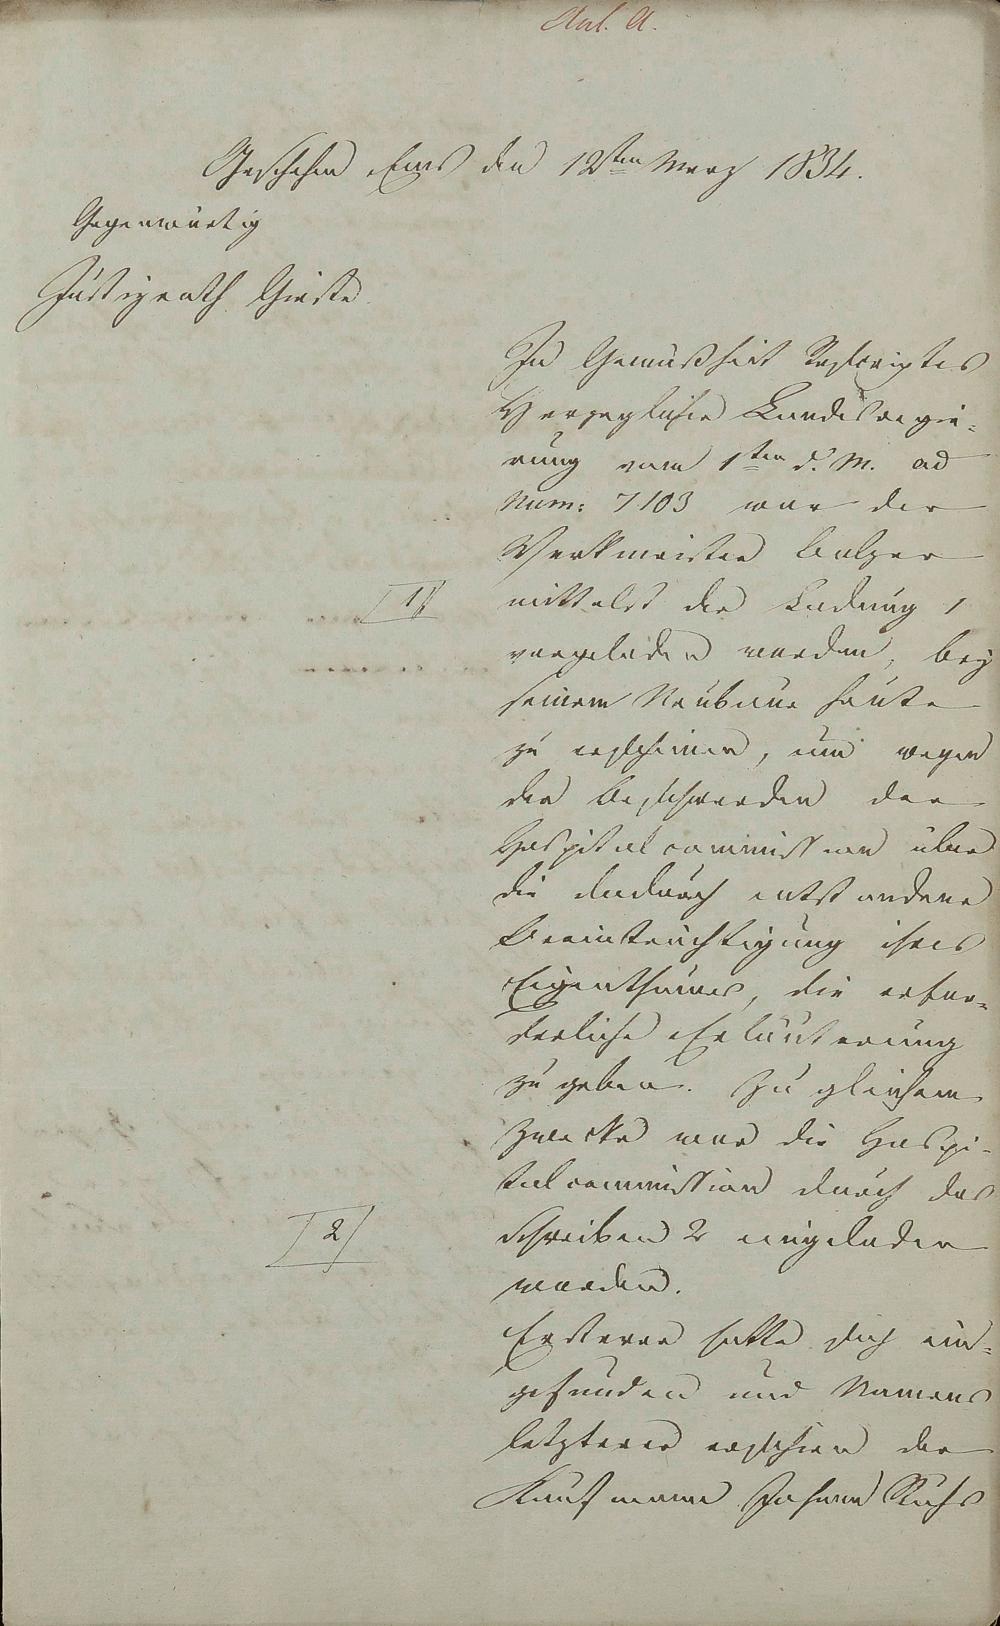 Anl. A.
Geschehen Ems den 12ten Merz 1834.
Gegenwärtig
Justizrath Gieße
In Gemäßheit Rescriptes
Herzoglicher Landesregie-
rung vom 1ten d. M. ad
Num: 7103 war der
Werkmeister Balzer
1/ mittelst der Ladung 1
vorgeladen worden, bey
seinem Neubaue heute
zu erscheinen, um wegen
der Beschwerden der
Hospitalcommission über
die dadurch entstandene
Beeinträchtigung ihres
Eigenthumes, die erfor-
derliche Erläuterung
zu geben. Zu gleichem
Zwecke war die Hospi-
talcommission durch das
2/ Schreiben 2 eingeladen
worden.
Ersterer hatte sich ein-
gefunden und Namens
letzterer erschien der
Kaufmann Johann